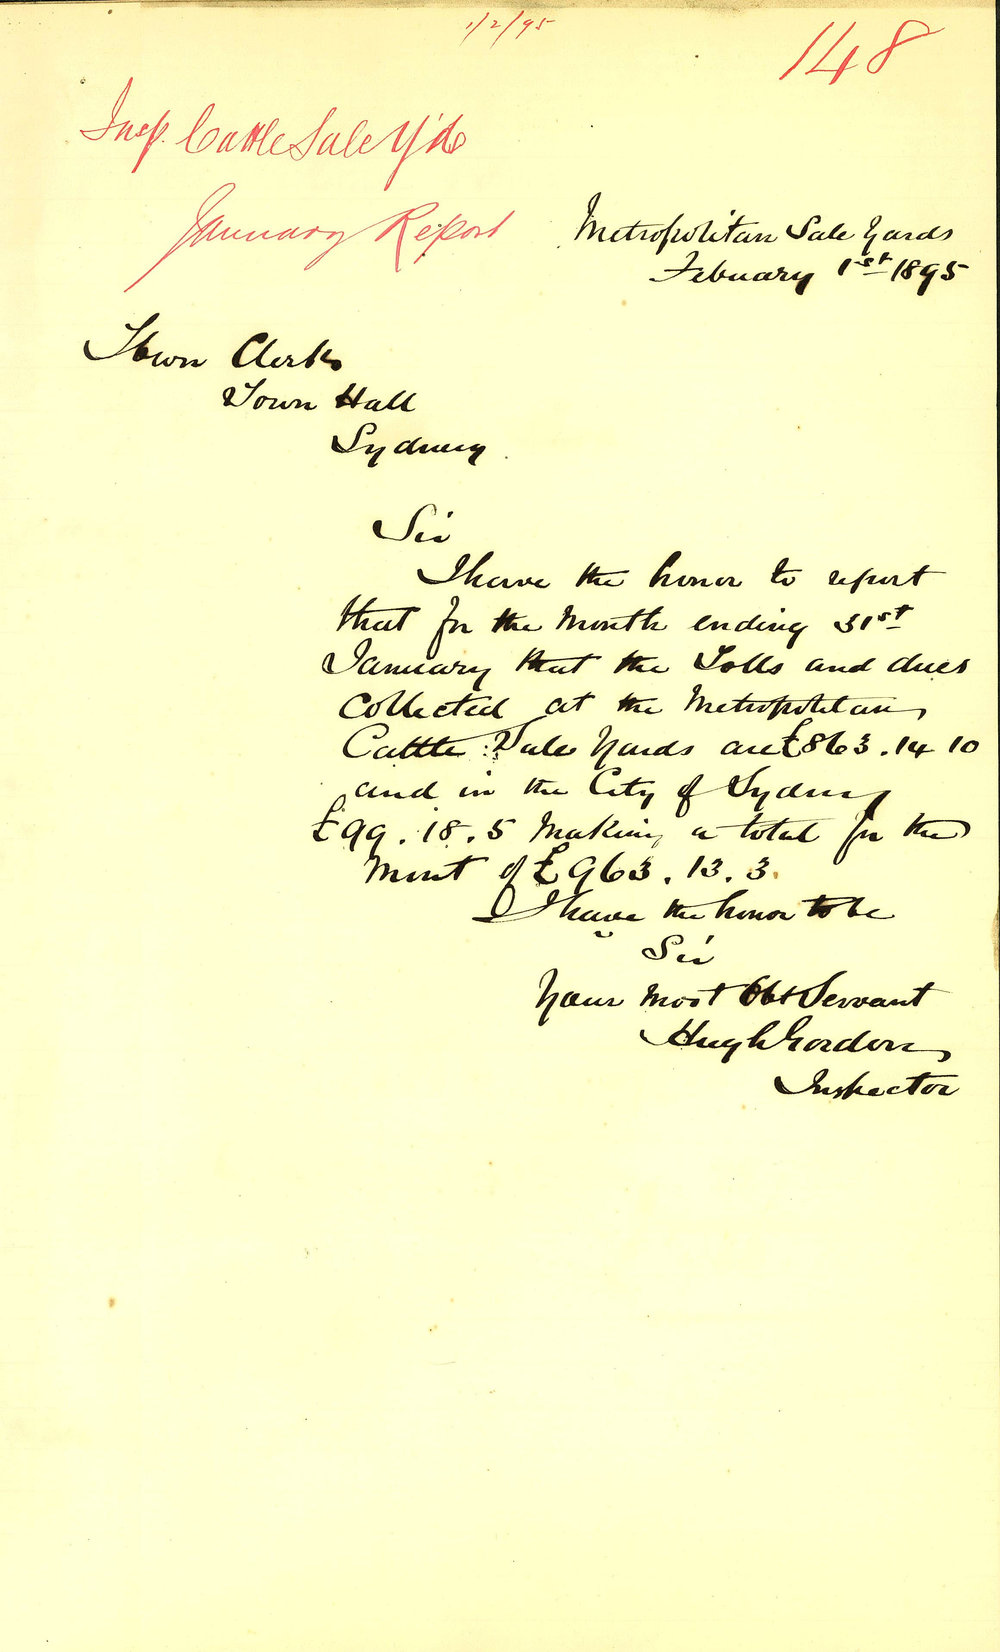 1/2/95
148
Insp. Cattle Sale Y'ds
January Report
Metropolitan Sale Yards
Febuary 1st 1895
Town Clerk
Town Hall
Sydney
Sir
I have the honor to report
that for the Month ending 31st
January that the Tolls and dues
Collected at the Metropolitan
Cattle Sale Yards are £863.14 10
and in the City of Sydney
£99.18.5 Making a total for the
Mont of £963.13.3.
I have the honor to be
Sir
Your Most Obt Servant
Hugh Gordon
Inspector